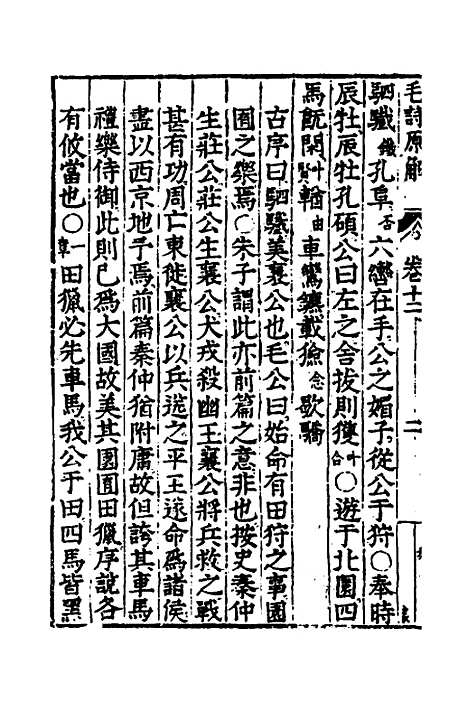 毛詩原解 卷十二 二
駟驖鐵孔阜否六轡在手公之媚子從公于狩〇奉時
辰牡辰牡孔碩公曰左之舍拔則獲〇遊于北園四
馬旣閑輶由車鸞鑣載獫念歇驕
古序曰駟驖美襄公也毛公曰始命有田狩之事園
囿之樂焉〇朱子謂此亦前篇之意非也按史秦仲
生莊公莊公生襄公犬戎殺幽王襄公將兵救之戰
甚有功周亡東徙襄公以兵送之平王遂命爲諸侯
盡以西京地予焉前篇秦仲猶附庸故但誇其車馬
禮樂侍御此則已爲大國故美其園囿田獵序說各
有攸當也〇一章田獵必先車馬我公于田四馬皆黑